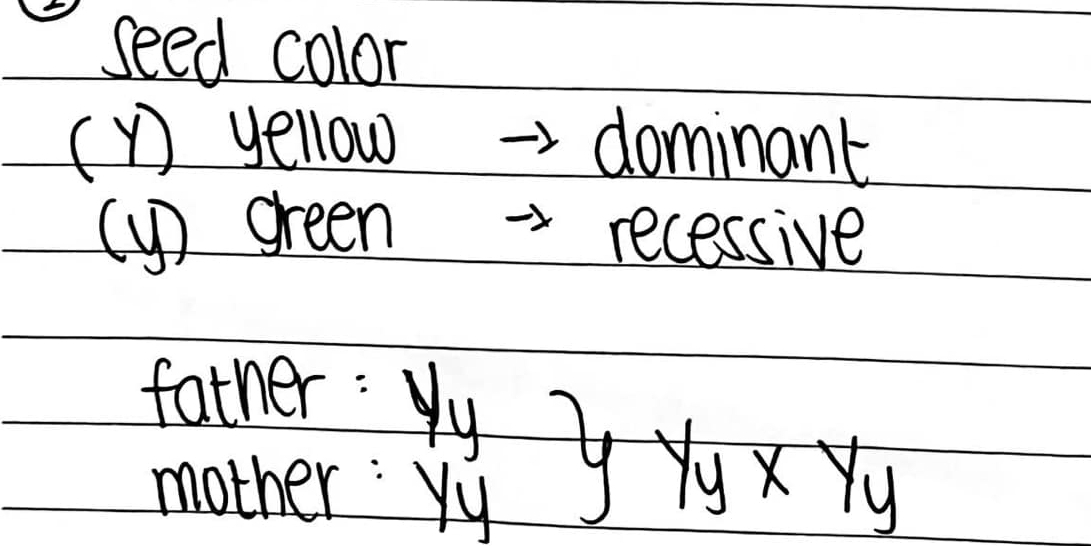 2
seed color
(Y) yellow → dominant
(y) green → recessive
father : Yy
mother : Yy } Yy x Yy